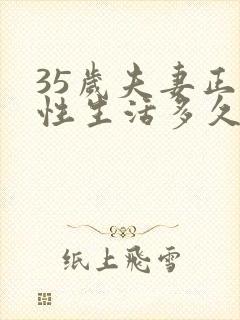 35歲夫妻正
性生活多久
纸上飛雪